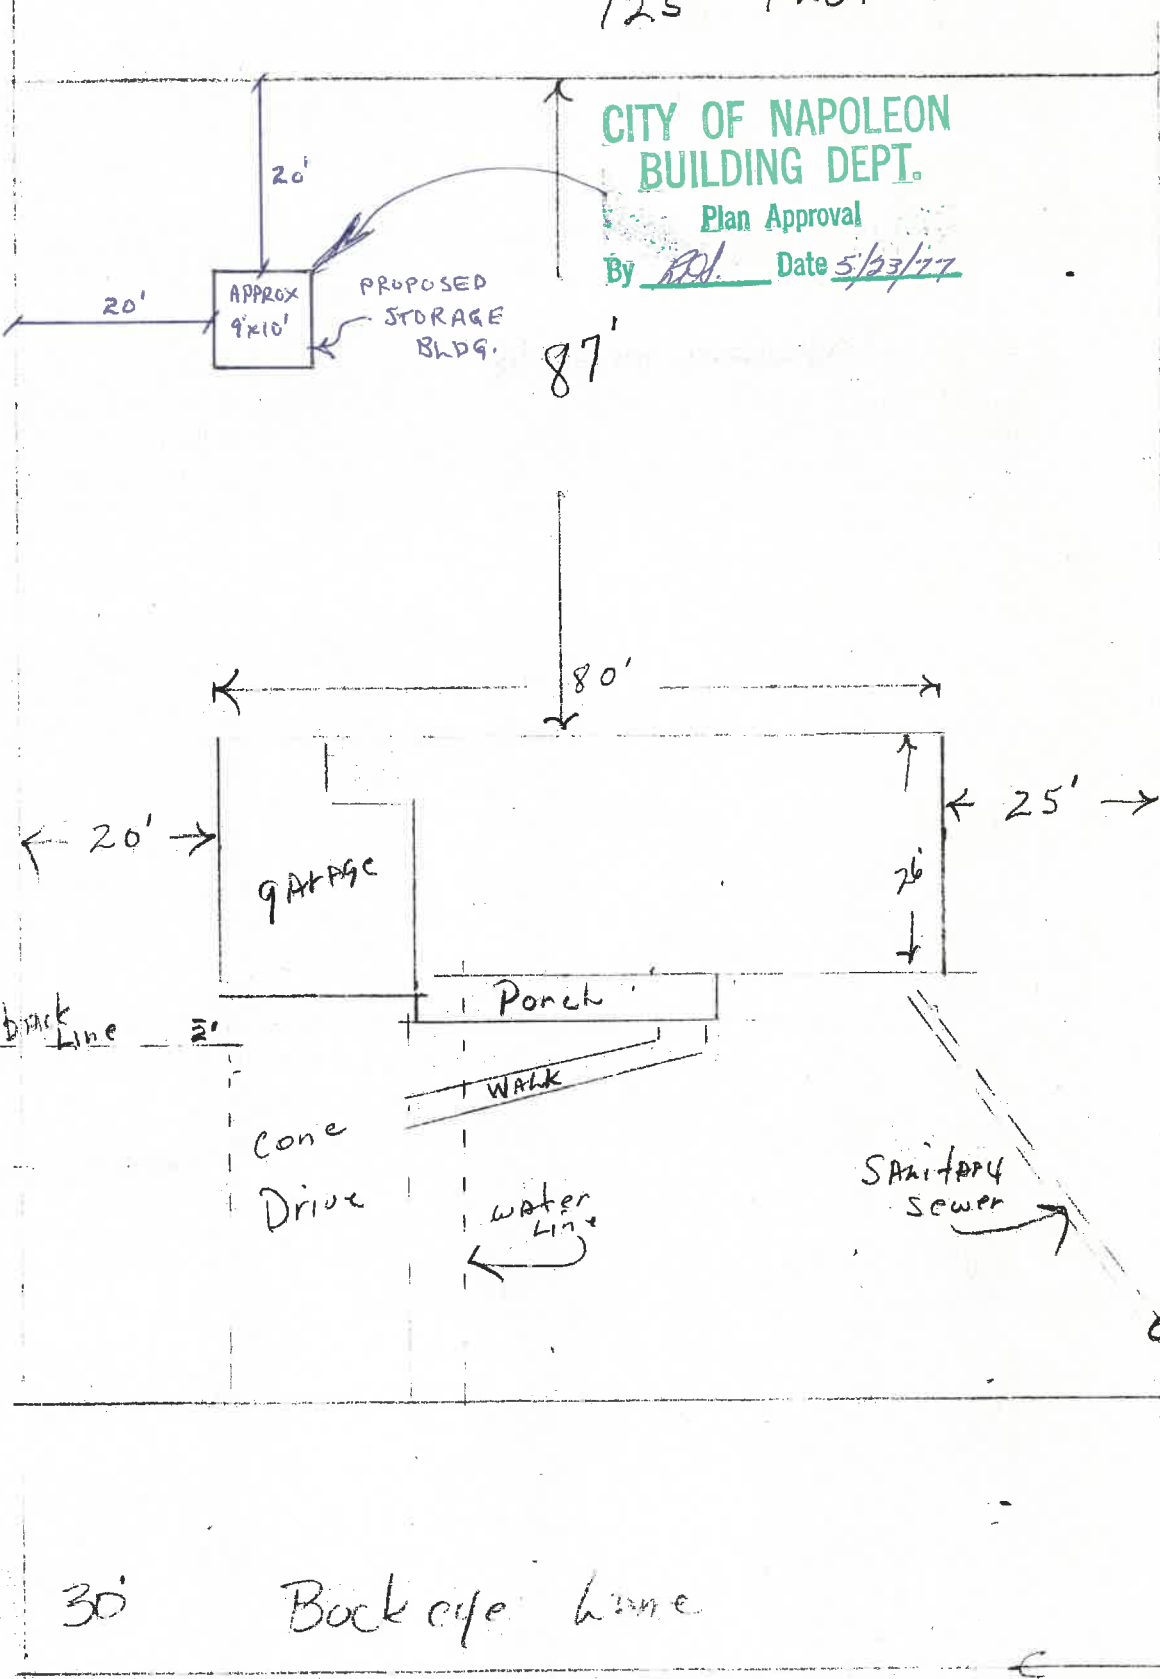 125
CITY OF NAPOLEON
BUILDING DEPT.
Plan Approval
By Date 5/23/77
20'
20'
APPROX
9'x10'
PROPOSED
STORAGE
BLDG.
87'
80'
20'
25'
26'
GArAGe
Porch
back
Line 2'
WALK
Conc
Drive
WAter
Line
SANitARY
Sewer
30' Buckeye Lane